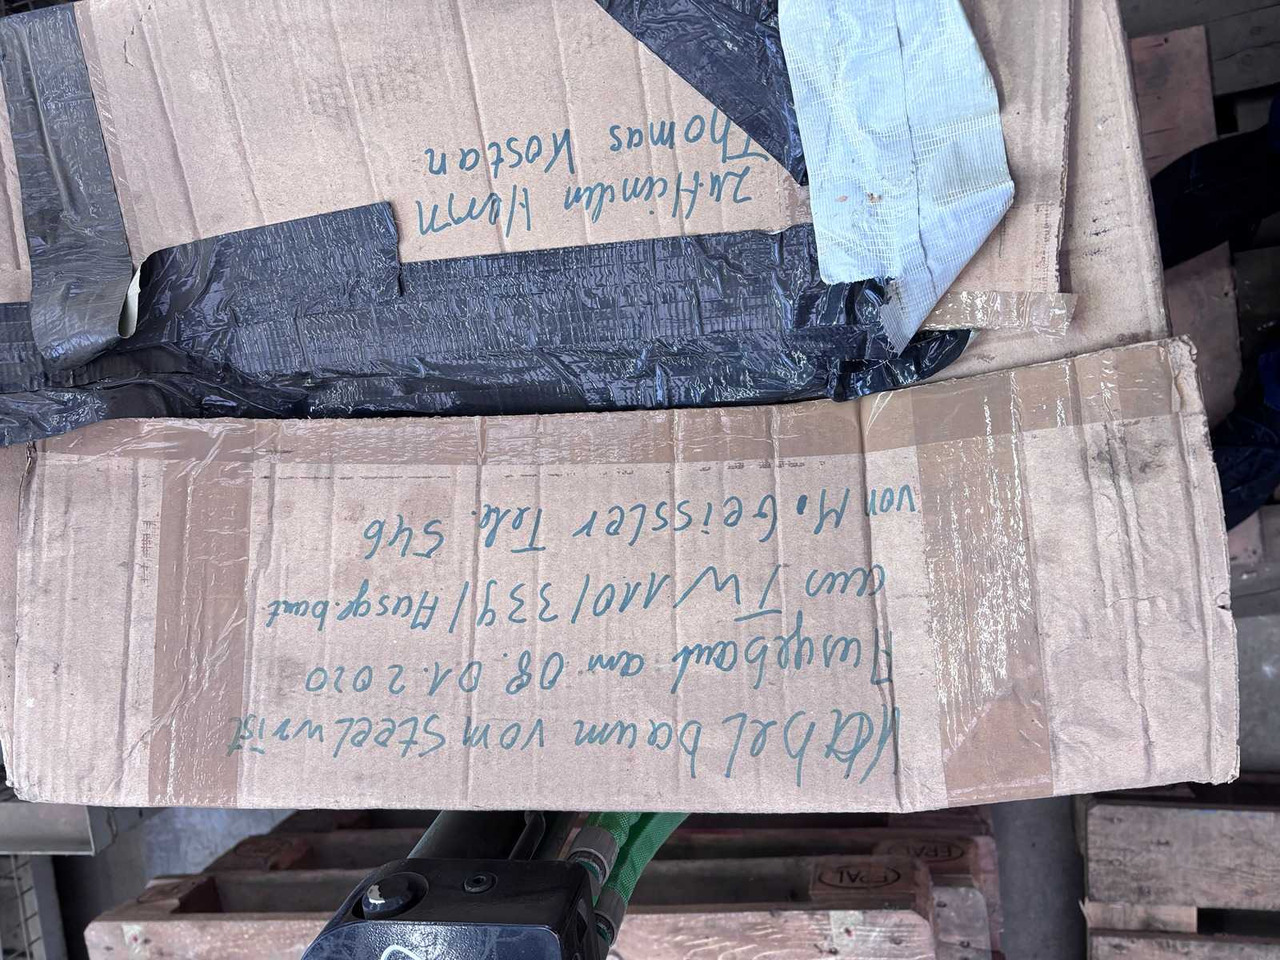 Kabelbaum vom Steelwrist
Ausgebaut am 08.01.2020
aus TW 110/339/Ausgebaut
von M. Geissler Tele. 546
zu Händen Herrn
Thomas Kostan
EPAL
EPAL